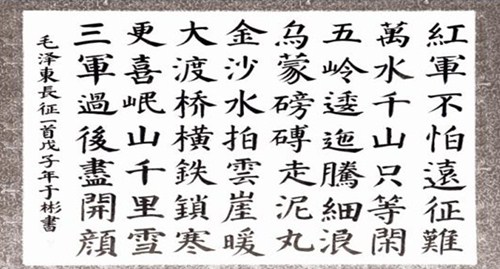 紅軍不怕遠征難
萬水千山只等閑
五岭逶迤騰細浪
烏蒙磅磚走泥丸
金沙水拍雲崖暖
大渡桥橫鉄鎖寒
更喜岷山千里雪
三軍過後盡開顔
毛泽東長征一首戊子年于彬書